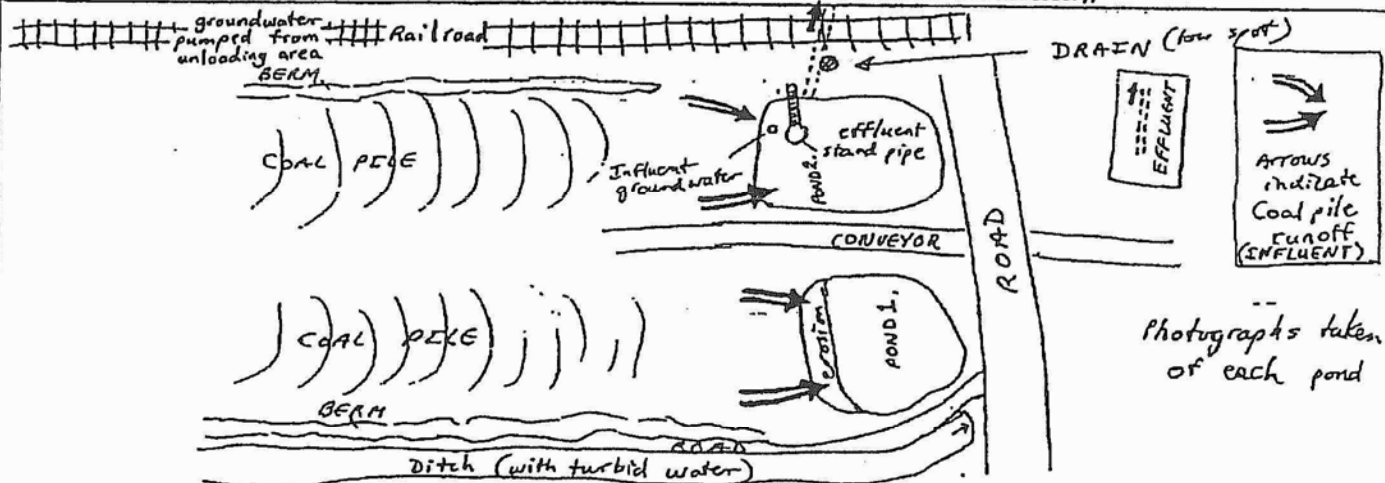 groundwater
pumped from
unloading area
Railroad
DRAIN (low spot)
BERM
COAL PILE
Influent
groundwater
effluent
stand pipe
POND 2.
EFFLUENT
Arrows
indicate
Coal pile
runoff
(INFLUENT)
CONVEYOR
ROAD
COAL PILE
erosion
POND 1.
Photographs taken
of each pond
BERM
ROAD
Ditch (with turbid water)